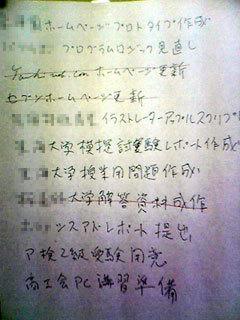 ホームページプロトタイプ作成
プログラムロジック見直し
ホームページ更新
セブンホームページ更新
イラストレーターアップルスクリプト
大学模擬試験レポート作成
大学検定用問題作成
大学解答資料作成
シスアドレポート提出
P検2級受験用意
商工会PC講習準備